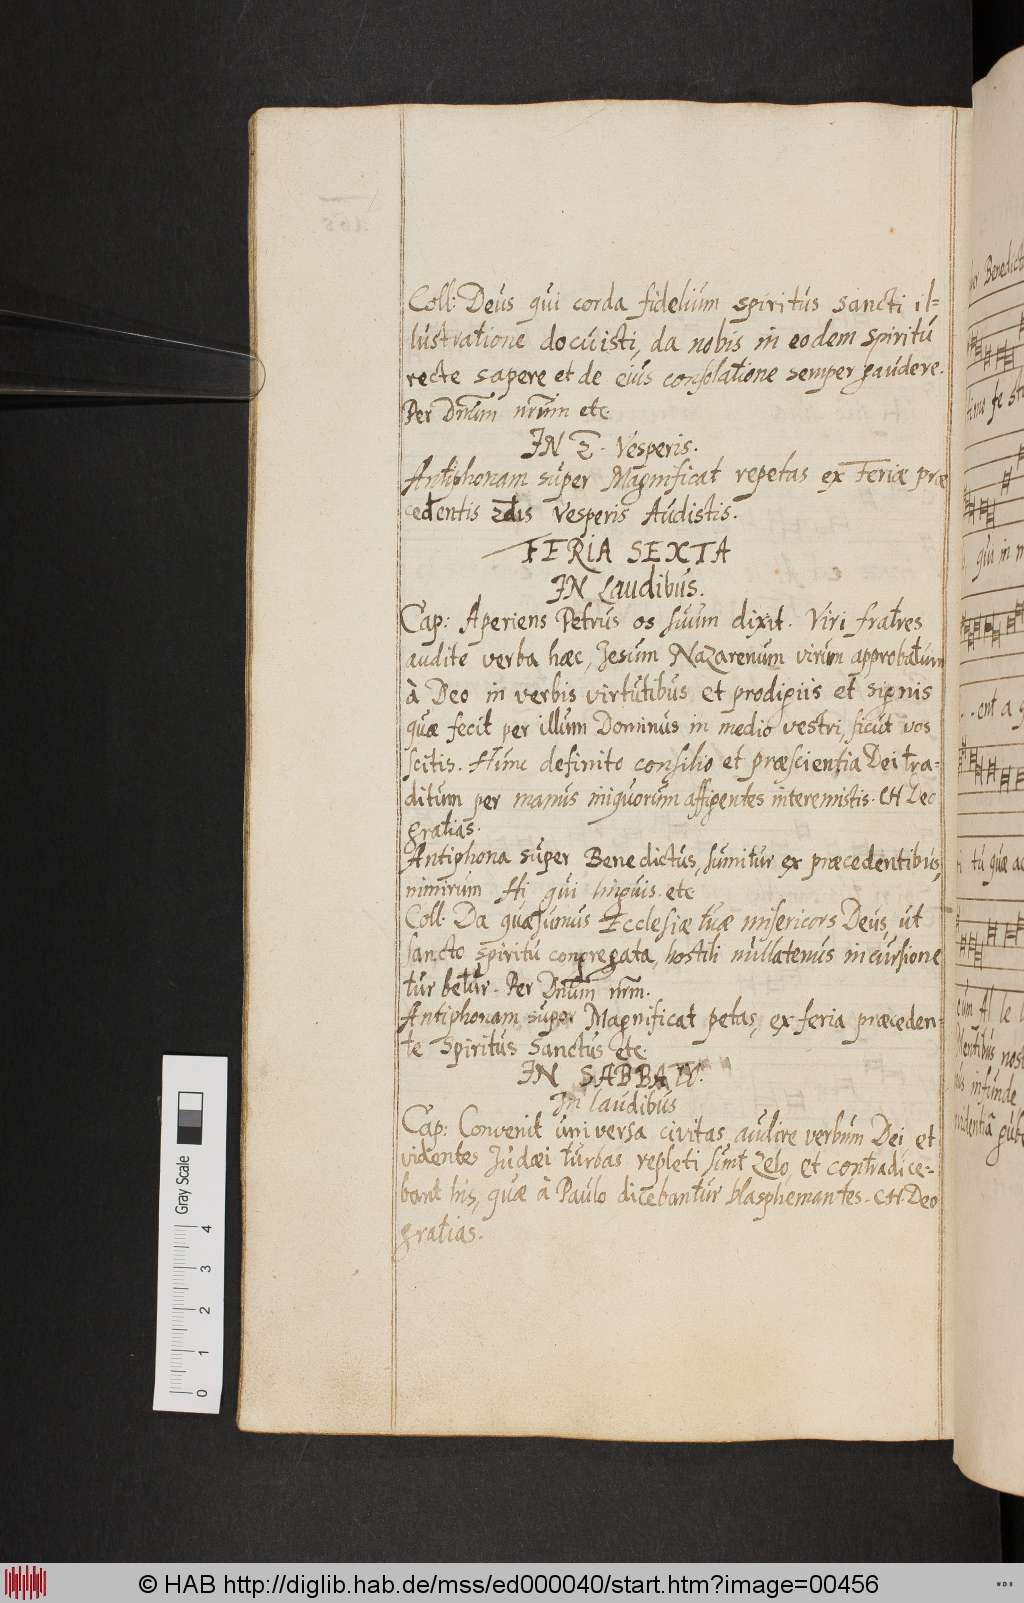 Coll: Deus qui corda fidelium spiritús sancti il=
lústratione docúisti, da nobis in eodem spiritú
recte sapere et de eiús consolatione semper gaudere.
Per Dnúm nrúm etc.
IN 2. Vesperis.
Antiphonam súper Magnificat repetas ex Feriæ præ
cedentis 2dis Vesperis Aúdistis.
FERIA SEXTA
IN Laudibús.
Cap: Aperiens Petrús os súúm dixit. Viri fratres
audite verba hæc, Jesúm Nazarenúm virúm approbatúm
à Deo in verbis virtútibús et prodigiis et signis
quæ fecit per illúm Dominús in medio vestri, sicút vos
scitis. Húnc definito consilio et præscientia Dei tra=
ditúm per manús iniquorúm affigentes interemistis. CH Deo
gratias.
Antiphona súper Benedictús, súmitúr ex præcedentibús,
nimirúm Hi qui linguis. etc
Coll. Da quæsumús Ecclesiæ túæ misericors Deús, út
sancto spiritú congregata, hostili núllatenús incúrsione
túrbetúr. Per Dnúm nrm.
Antiphonam súper Magnificat petas, ex feria præceden=
te Spiritús Sanctús etc.
IN SABBATO.
In laudibús
Cap: Convenit úniversa civitas audire verbúm Dei et
videntes Júdæi túrbas repleti súnt zelo, et contradice=
bant his, quæ à Paúlo dicebantúr blasphemantes. CH Deo
gratias.
Benedict
qui in m
ent a
tú quæ
cúm Al le l
infúnde
Gray Scale
4
3
2
1
0
© HAB http://diglib.hab.de/mss/ed000040/start.htm?image=00456